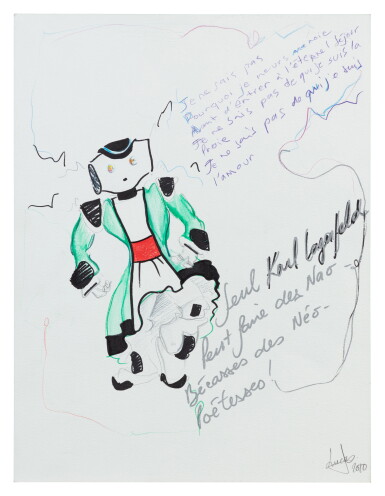 Je ne sais pas
Pourquoi je meurs
Avant d'entrer à l'éternel séjour
Je ne sais pas de qui je suis la
Proie
Je ne sais pas de qui je suis
l'amour
Seul Karl Lagerfeld
Peut faire des Nao-
Bécasses des Néo-
Poétesses!